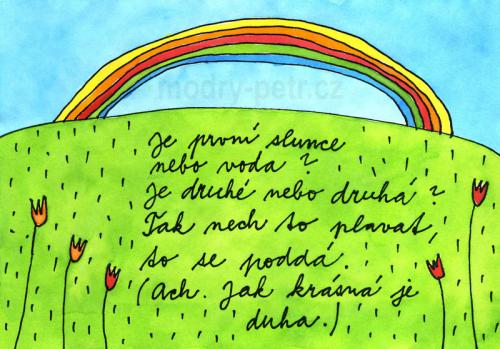 modry-petr.cz
Je první slunce
nebo voda?
Je druhé nebo druhá?
Tak nech to plavat,
to se poddá
(Ach. Jak krásná je
duha.)